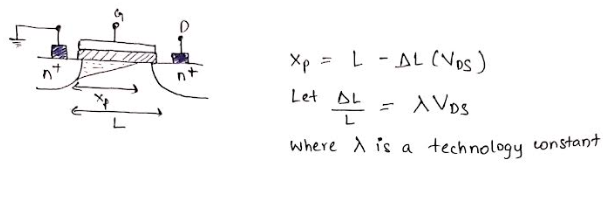 G
D
n+
n+
xp
L
xp = L - ΔL (VDS)
Let ΔL/L = λ VDS
where λ is a technology constant